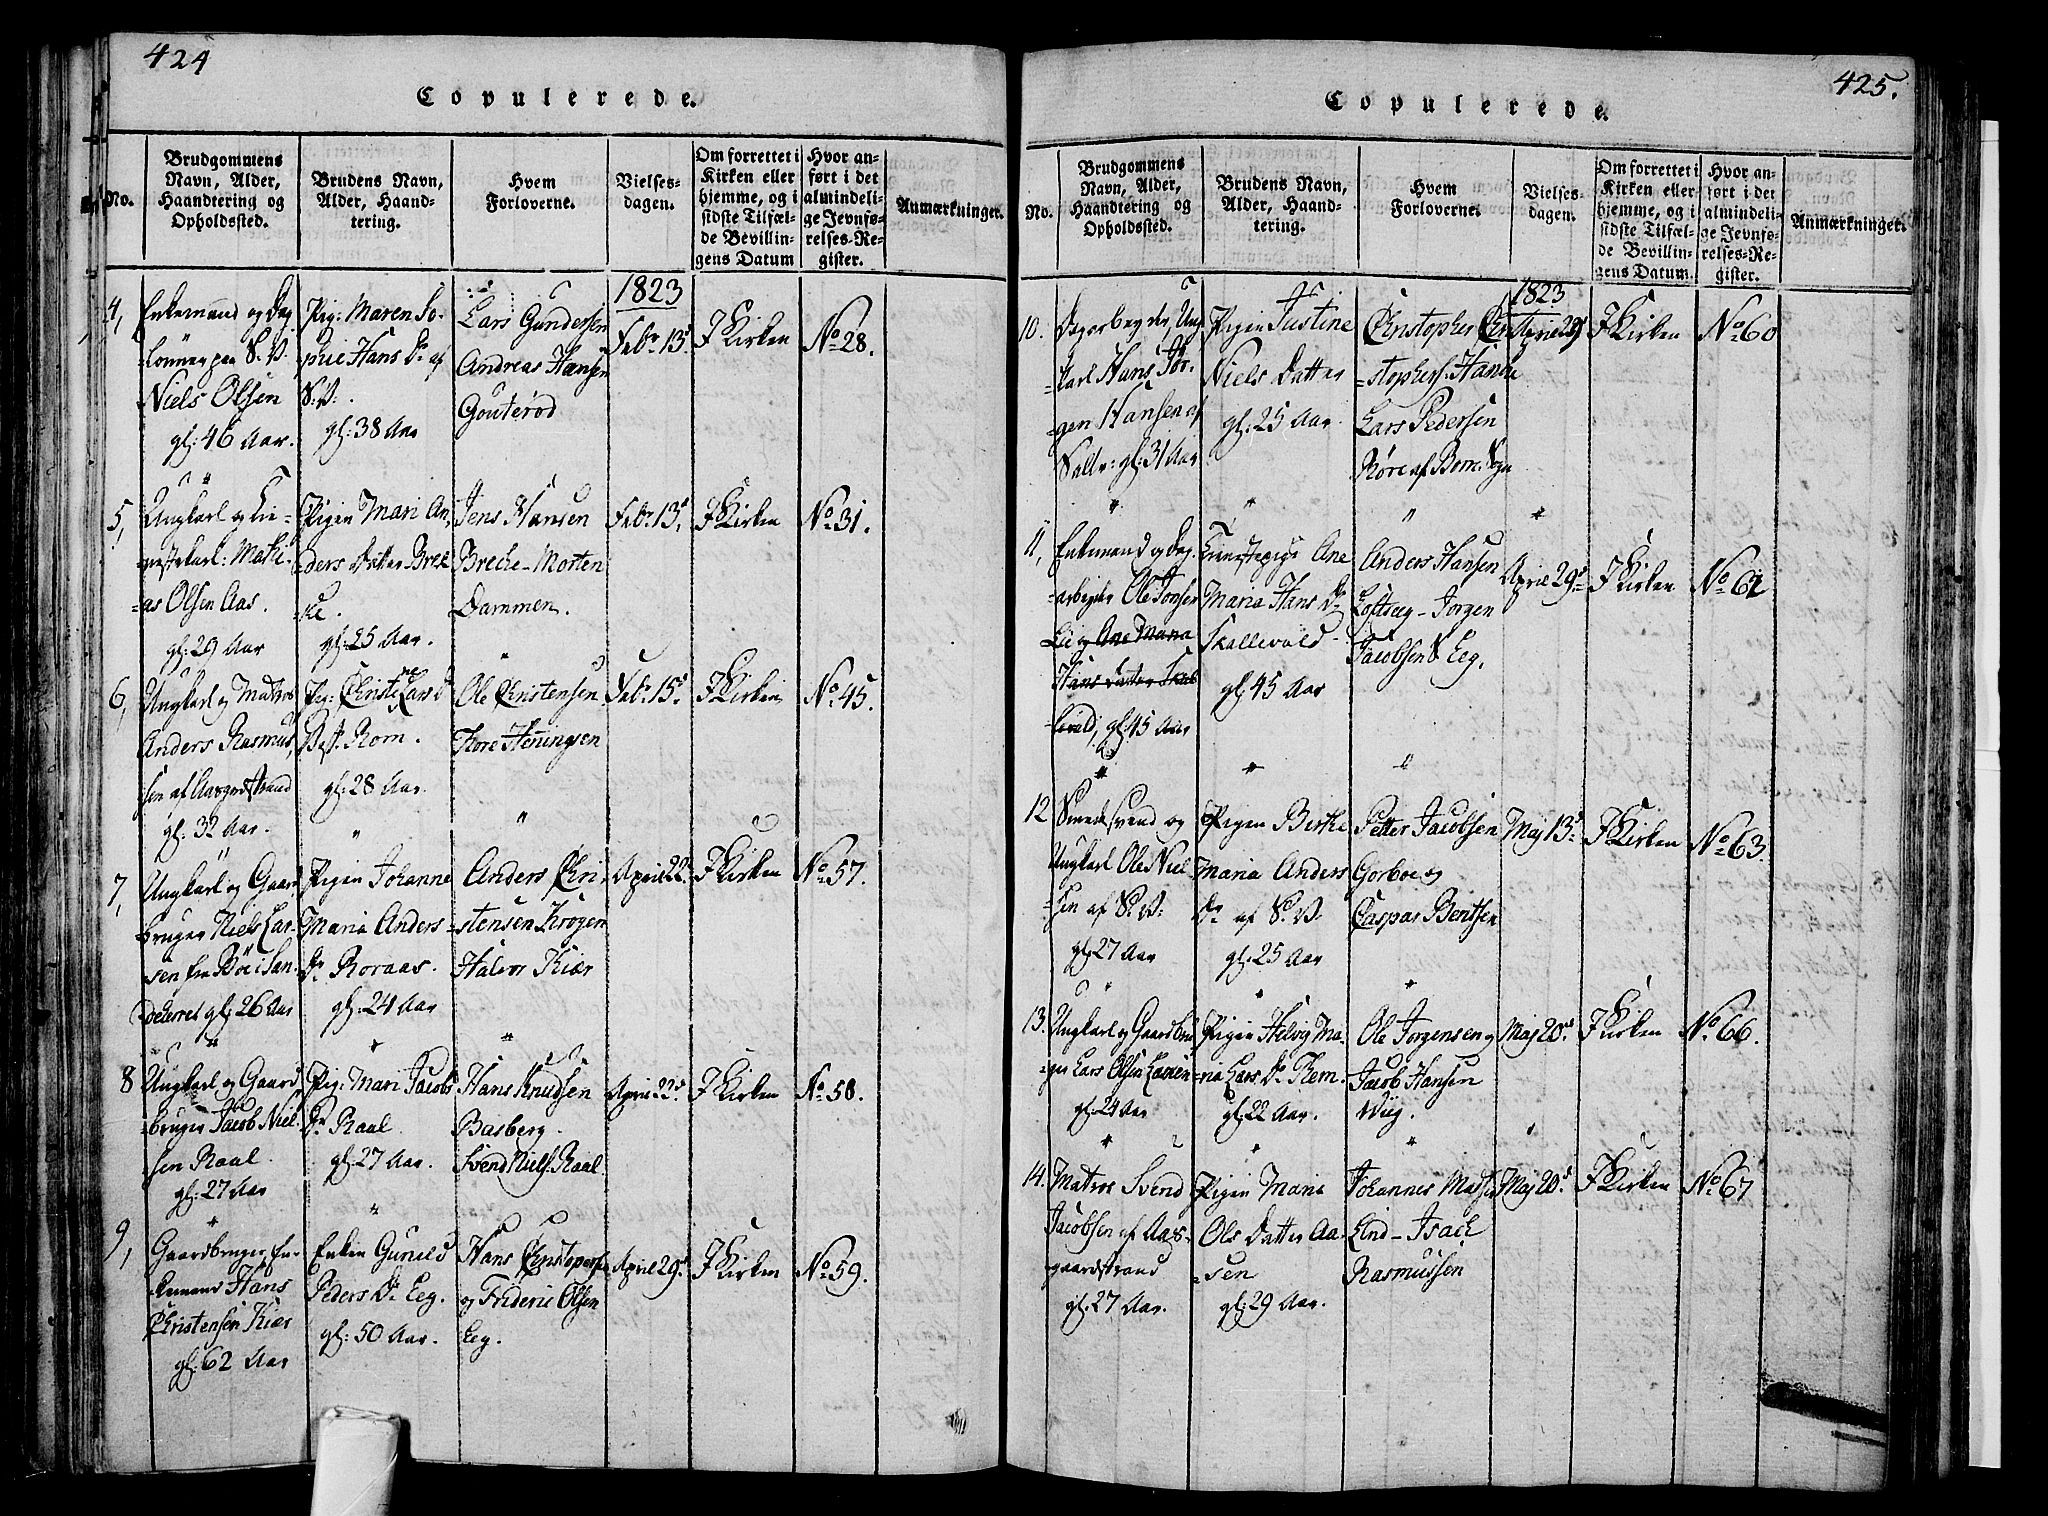 424
Copulerede.
No.
Brudgommens
Navn, Alder,
Haandtering og
Opholdssted.
Brudens Navn,
Alder, Haand-
tering.
Hvem
Forloverne.
Vielses-
dagen.
Om forrettet i
Kirken eller
hjemme, og i
sidste Tilfæl-
de Bevillin-
gens Datum
Hvor an-
ført i det
almindeli-
ge Jevnfø-
relses-Re-
gister.
Anmærkninger.
1823
4,
Enkemand og Dag
-lönner paa S. V.
Niels Olsen
gl: 46 Aar.
Pig: Maren So-
phie Hans Dr af
S: V:.
gl: 38 Aar
Lars Gundersen
Andreas Hansen
Gouterød
Febr. 13d
I Kirken
No 28.
5,
Ungkarl og Tie-
nestekarl: Mathi-
-as Olsen Aas.
gl: 29 Aar
Pigen Mari An-
ders Datter Brek
ke.
gl: 25 Aar.
Jens Hansen
Breche - Morten
Dammen.
Febr. 13d
I Kirken
No 31.
6,
Ungkarl og Matros
Anders Rasmus,
sen af Aasgrdstrand
gl: 32 Aar.
Pig: Christi Lars D
Rom.
gl: 28 Aar.
Ole Christensen
Thore Heningsen
Febr. 15d
I Kirken
No 45.
7,
Ungkarl og Gaard
bruger Niels Lar-
sen fra Böe i San-
deherret gl: 26 Aar
Pigen Johanne
Maria Anders
Dr Roraas.
gl: 24 Aar
Anders Chri
-stensen Krogen
Halvor Kiær
April 22d
I Kirken
No 57.
8
Ungkarl og Gaard
-bruger Jacob Niel
sen Raal.
gl: 27 Aar
Pig: Mari Jacobs
Dr Raal.
gl: 27 Aar.
Hans Knudsen
Basberg.
Svend Niels. Raal
April 22d
I Kirken
No 58.
9,
Gaardbruger, En-
kemand Hans
Christensen Kiær
gl: 62 Aar
Enken Gunild
Peders Dr Eeg.
gl: 50 Aar.
Hans Christopers
og Frideric Olsen
Eeg.
April 29d
I Kirken
No 59.
425.
Copulerede.
No.
Brudgommens
Navn, Alder,
Haandtering og
Opholdssted.
Brudens Navn,
Alder, Haand-
tering.
Hvem
Forloverne.
Vielses-
dagen.
Om forrettet i
Kirken eller
hjemme, og i
sidste Tilfæl-
de Bevillin-
gens Datum.
Hvor an-
ført i det
almindeli-
ge Jevnfø-
relses-Re-
gister.
Anmærkninger.
1823
10.
Dagarbeyder, Ung
-karl Hans Jör-
-gen Hansen af
Valle: gl: 31 Aar
Pigen Justine
Niels Datter
gl: 25 Aar.
Christopher Chri
=stophers. Hanne
Lars Pedersen
Röre af Born. Sogn
April 29d
I Kirken
No 60
11,
Enkemand og Dag.
-arbeyder Ole Jonsen
Lie og Ane Maria
Hans Datter Skal
-levold, gl: 45 Aar
Tienstepige Ane
Maria Hans Dr
Skallevold -
gl: 45 Aar
Anders Hansen
Loftseeg - Jorgen
Jacobsen Eeg.
April 29d
I Kirken
No 62
12
Smedesvend og
Ungkarl Ole Niel-
sen af S. V:
gl: 27 Aar
Pigen Birthe
Maria Anders
Dr af S. V.
gl: 25 Aar
Petter Jacobsen
Gorboe og
Caspar Bentsen
Maj 13d
I Kirken
No 63.
13.
Ungkarl og Gaardbru
-ger Lars Olsen
gl: 24 Aar
Pigen Helvig Ma-
-ria Lars Dr Rem.
gl: 22 Aar.
Ole Jorgensen og
Jacob Hansen
Wiig.
Maj 20d
I Kirken
No 66.
14.
Matros Svend
Jacobsen af Aas-
gaardstrand
gl: 27 Aar.
Pigen Maria
Ols Datter Aa-
-sen
gl: 29 Aar.
Johannes Madsen
Lind - Isach
Rasmussen
Maj 20d
I Kirken
No 67